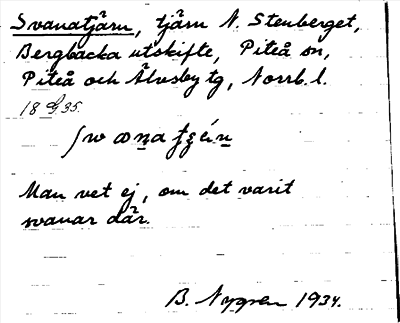 Svanatjärn, tjärn N. Stenberget,
Bergbacka utskifte, Piteå sn,
Piteå och Älvsby tg, Norrb. l.
18 35.
Man vet ej, om det varit
svanar där.
B. Nygren 1934.